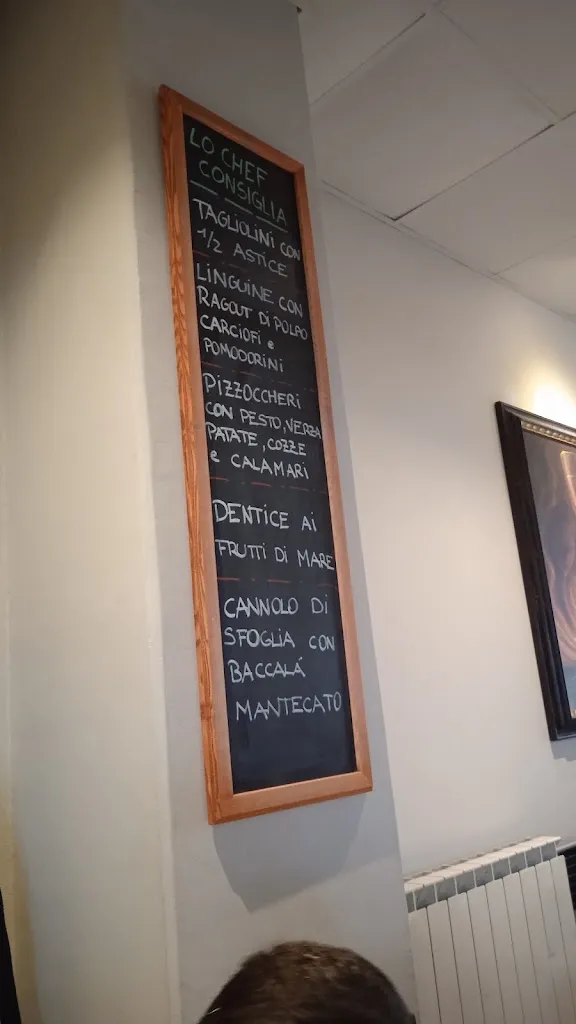 LO CHEF
CONSIGLIA
TAGLIOLINI CON
1/2 ASTICE
LINGUINE CON
RAGOUT DI POLPO
CARCIOFI e
POMODORINI
PIZZOCCHERI
CON PESTO, VERZA
PATATE, COZZE
e CALAMARI
DENTICE AI
FRUTTI DI MARE
CANNOLO DI
SFOGLIA CON
BACCALÁ
MANTECATO